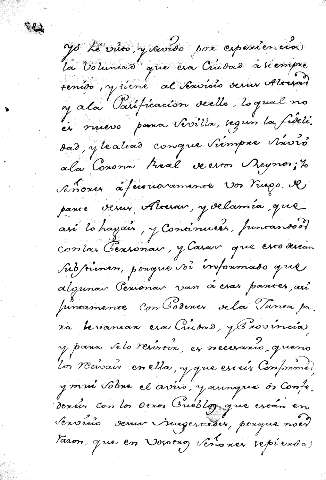 Yo hé visto, y servido por experiencia
la Voluntad que esa Ciudad á siempre
tenido, y tiene al Servicio de sus Altezas
y a la Pacificacion de ello, lo qual no
es nuevo para Sevilla, segun la fideli
dad, y lealtad con que siempre sirvió
a la Corona Real de estos Reynos; Yo
Señores afectuosamente vos ruego, de
parte de sus Altezas, y de la mia, que
asi lo hagais, y continueis, juntandoos
contra Personas, y Casas que esto
porque soi informado que
algunas Personas van á esas partes, asi
juntamente con Poderes de la Junta pa
ra levantar esa Ciudad, y Provincia,
y para se lo resistir, es necesario, que no
los recivais en ella, y que esteis
y mui sobre el aviso, y aunque os
con los otros Pueblos que están en
Servicio de sus Magestades, porque no es
razon, que en Vosotros Señores